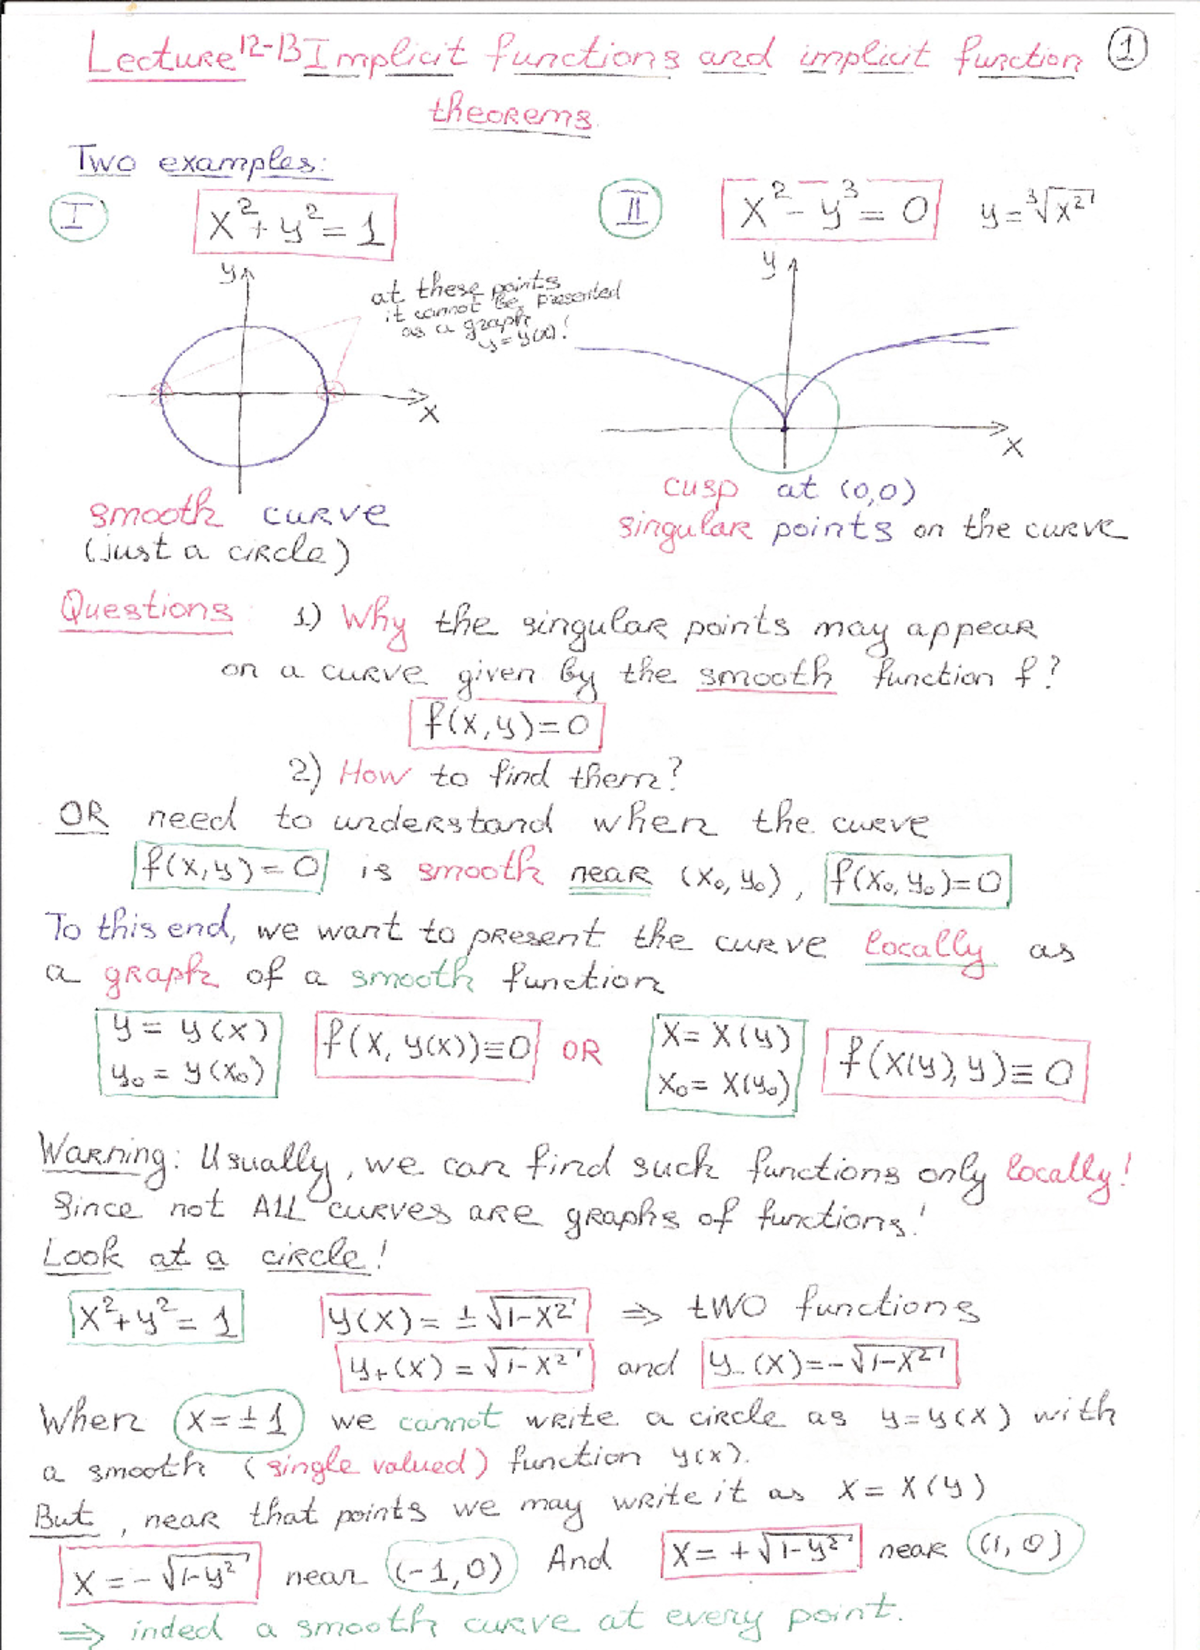 Lecture 12-13 Implicit functions and implicit function ①
theorems.
Two examples:
I x² + y² = 1 II x² - y³ = 0 y = ³√x²
y
at these points
it cannot be presented
as a graph
y = y(x)!
x
y
x
smooth curve
(just a circle)
cusp at (0,0)
singular points on the curve
Questions 1) Why the singular points may appear
on a curve given by the smooth function f?
f(x,y)=0
2) How to find them?
OR need to understand when the curve
f(x,y)=0 is smooth near (x₀, y₀), f(x₀, y₀)=0
To this end, we want to present the curve locally as
a graph of a smooth function
y = y(x)
y₀ = y(x₀)
f(x, y(x))≡0 OR
x = x(y)
x₀ = x(y₀)
f(x(y), y)≡0
Warning: Usually, we can find such functions only locally!
Since not ALL curves are graphs of functions!
Look at a circle!
x² + y² = 1 y(x) = ± √1-x² ⇒ two functions
y₊(x) = √1-x² and y₋(x) = -√1-x²
When x = ±1 we cannot write a circle as y=y(x) with
a smooth (single valued) function y(x).
But, near that points we may write it as x = x(y)
x = -√1-y² near (-1,0) And x = +√1-y² near (1,0)
⇒ inded a smooth curve at every point.